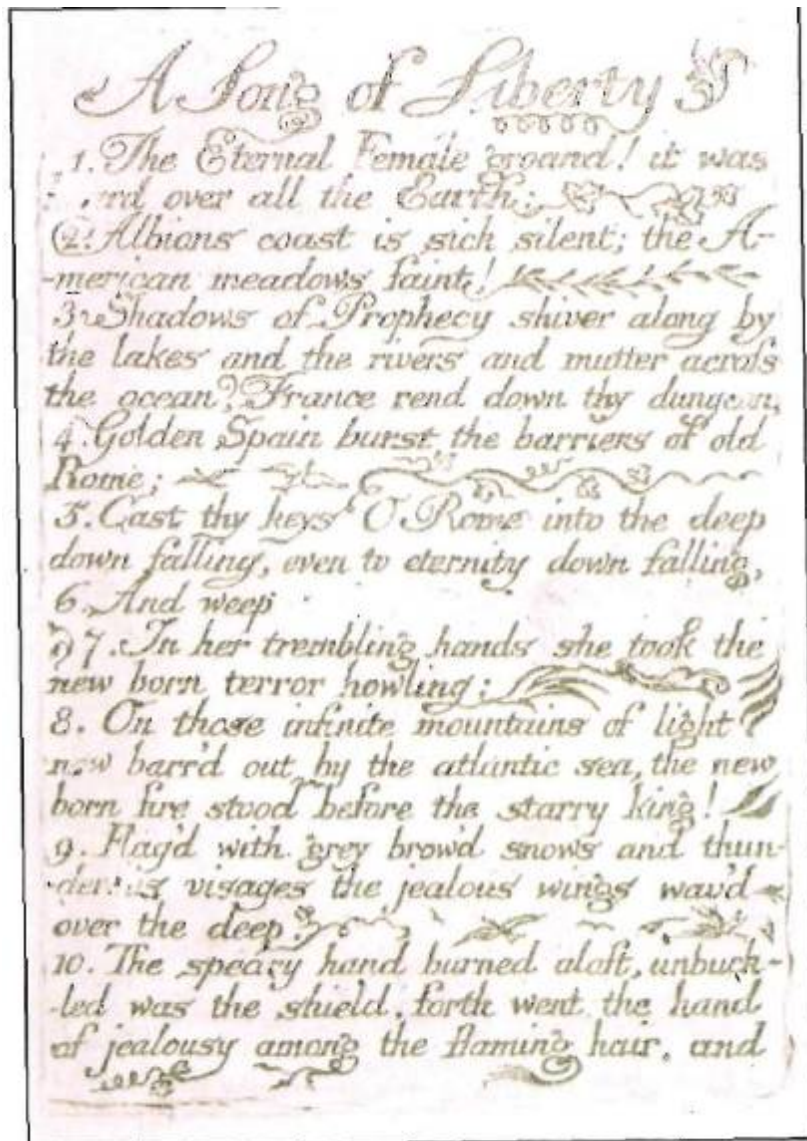 A Song of Liberty
1. The Eternal Female groand! it was
over all the Earth:
2. Albions coast is sick silent; the A-
-merican meadows faint!
3. Shadows of Prophecy shiver along by
the lakes and the rivers and mutter acroſs
the ocean? France rend down thy dungeon,
4. Golden Spain burst the barriers of old
Rome;
5. Cast thy keys O Rome into the deep
down falling, even to eternity down falling,
6. And weep
7. In her trembling hands she took the
new born terror howling:
8. On those infinite mountains of light
now barr'd out by the atlantic sea, the new
born fire stood before the starry king!
9. Flag'd with grey brow'd snows and thun-
-derous visages the jealous wings wav'd
over the deep
10. The speary hand burned aloft, unbuck-
-led was the shield. forth went the hand
of jealousy among the flaming hair, and